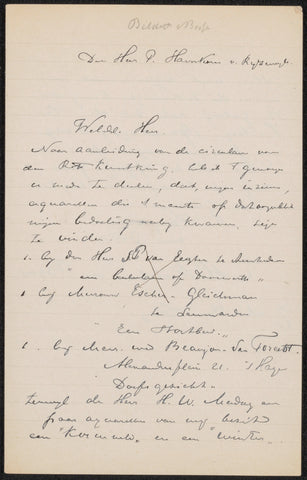 Den Heer P. Haverkorn v. Rijsewijk
WelEd. Heer.
Naar aanleiding van de circulaire van
den Kunstkring, heb ik 't genoegen
U mede te deelen, dat, mijns inziens,
aquarellen die 't meeste of
mijne bedoeling nabij kwamen, zijn
te vinden.
1. bij den Heer van Eeghen te Amsterdam
"een of Doorwerth"
1 bij Mevrouw Escher - Gleichman
te Leeuwarden
"Een
1. bij Mevr. wed Beaujon - Van Foreest.
Alexanderplein 21. 's Hage
"Dorpsgezicht".
terwijl de Heer H. W. Mesdag een
paar aquarellen van mij bezit
een "Korenveld" en een "winter".